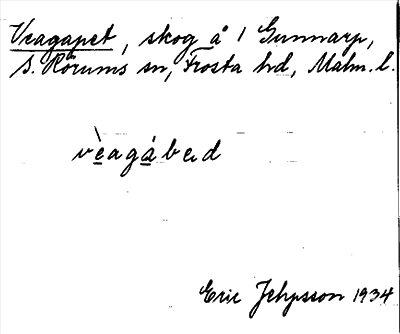 Veagapet, skog å 1 Gunnarp,
S. Rörums sn, Frosta hd, Malm. l.
vèagábed
Eric Jehpsson 1934